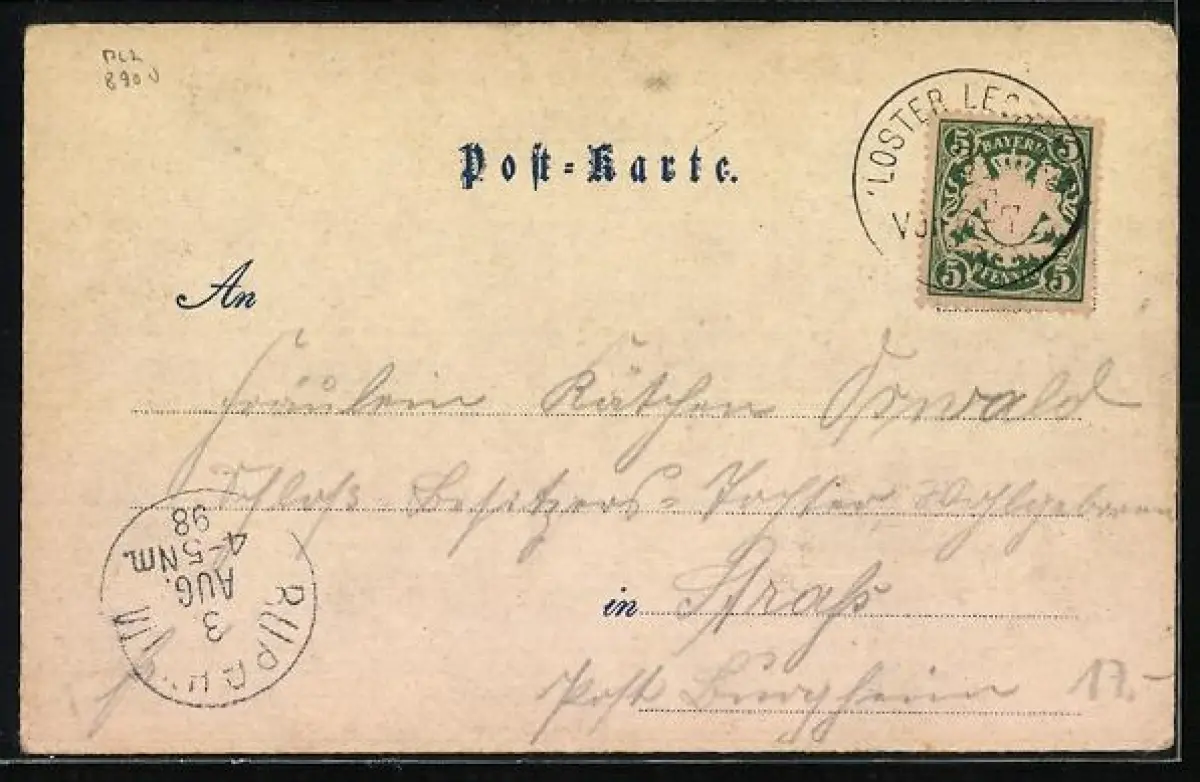 890
Post-Karte.
LOSTER LEC
5 BAYERN 5
5 PFENNIG 5
An
Fräulein Kätchen Oswald
Schloß-Besitzers-Tochter, Wohlgeboren
in Straß
Post Burgheim 17.-
3
AUG.
4-5Nm.
98